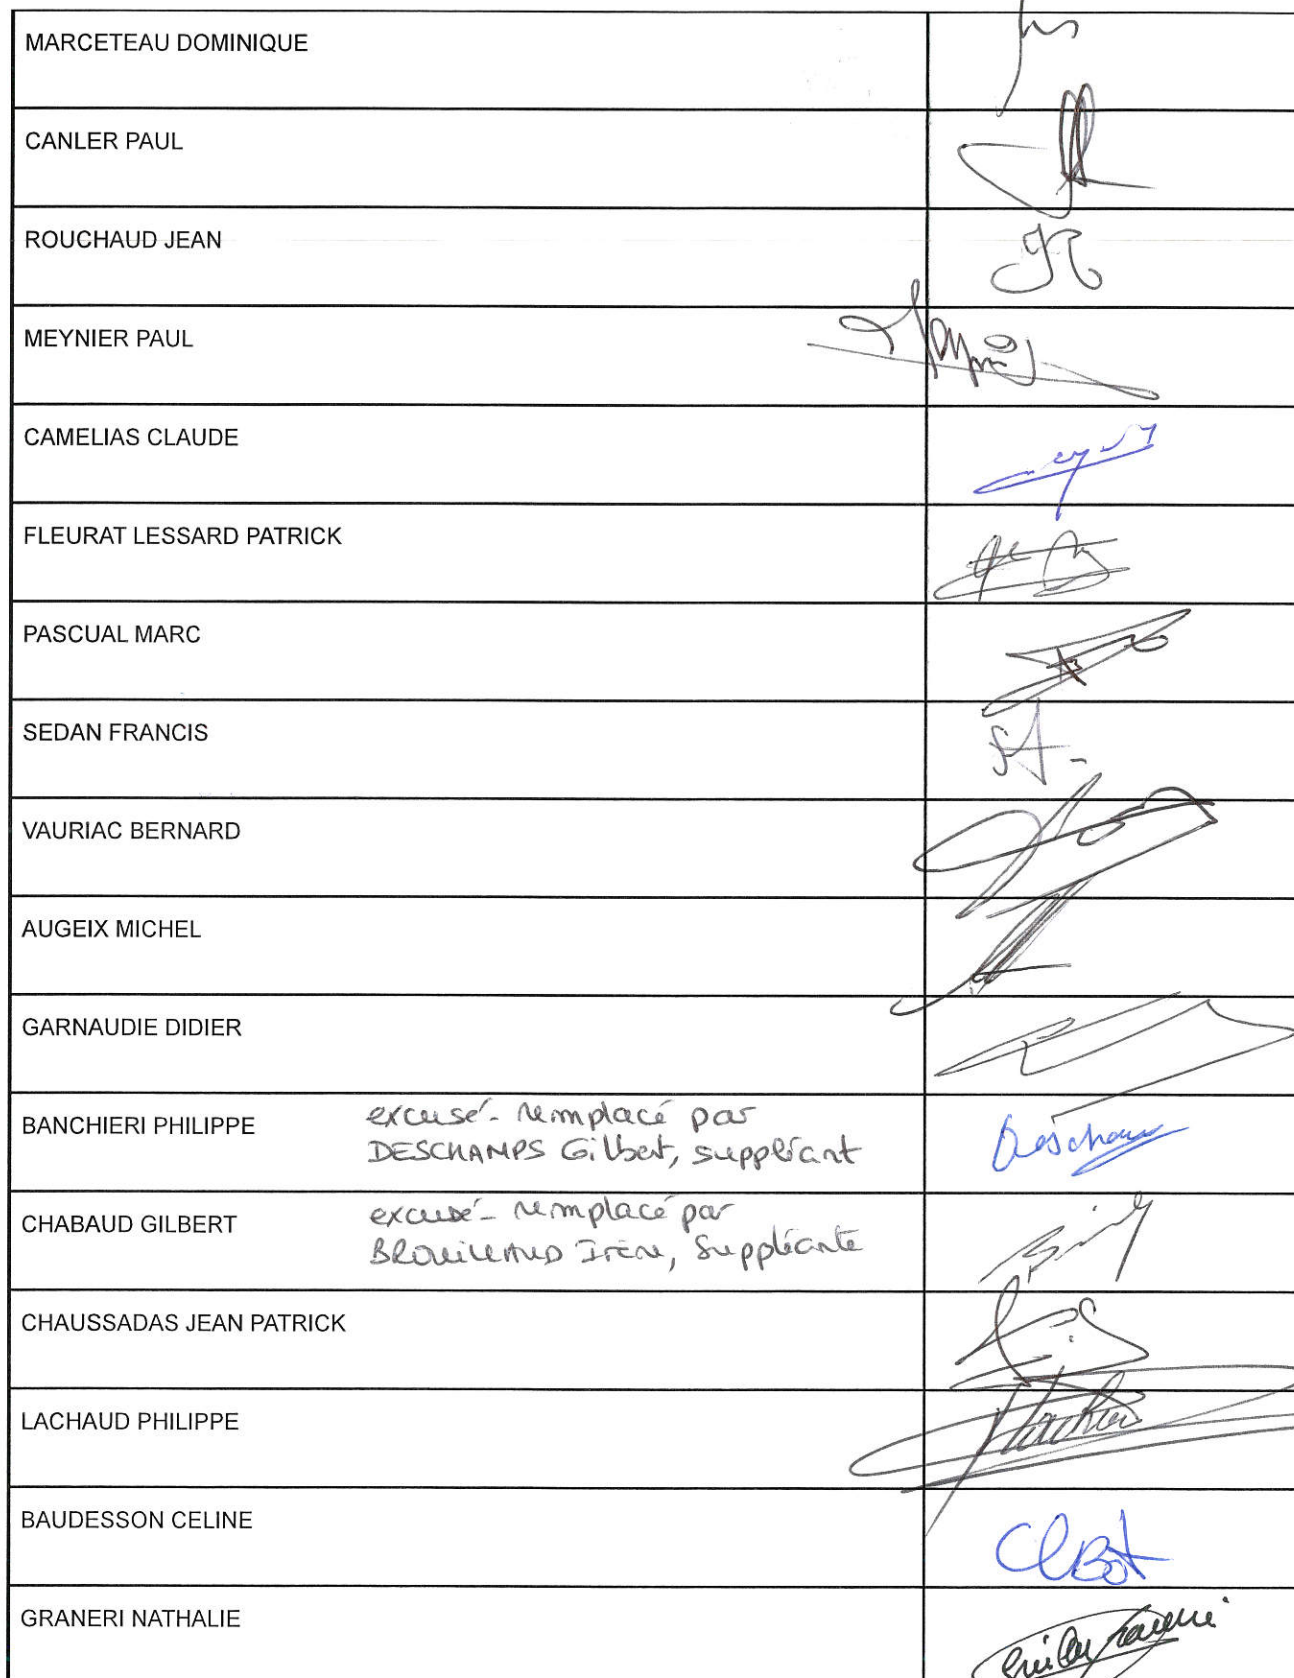 MARCETEAU DOMINIQUE
CANLER PAUL
ROUCHAUD JEAN
MEYNIER PAUL
CAMELIAS CLAUDE
FLEURAT LESSARD PATRICK
PASCUAL MARC
SEDAN FRANCIS
VAURIAC BERNARD
AUGEIX MICHEL
GARNAUDIE DIDIER
BANCHIERI PHILIPPE
excusé - remplacé par
DESCHAMPS Gilbert, suppléant
Deschamps
CHABAUD GILBERT
excusé - remplacé par
BROUILLAUD Irène, Suppléante
CHAUSSADAS JEAN PATRICK
LACHAUD PHILIPPE
BAUDESSON CELINE
GRANERI NATHALIE